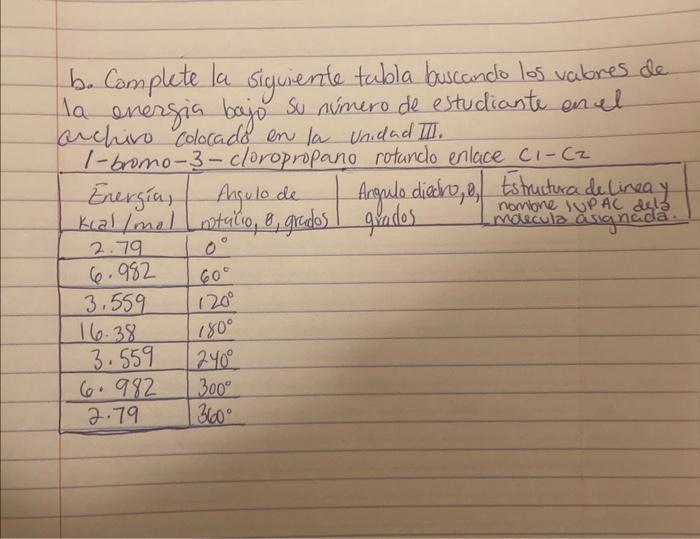 b. Complete la siguiente tabla buscando los valores de
la energia bajo su número de estudiante en el
archivo colocado en la Unidad III.
1-bromo-3-cloropropano rotando enlace C1-C2
Energía, Angulo de Angulo diedro, θ, Estructura de linea y
kcal/mol rotació, θ, grados grados nombre IUPAC de la
molecula asignada.
2.79 0°
6.982 60°
3.559 120°
16.38 180°
3.559 240°
6.982 300°
2.79 360°